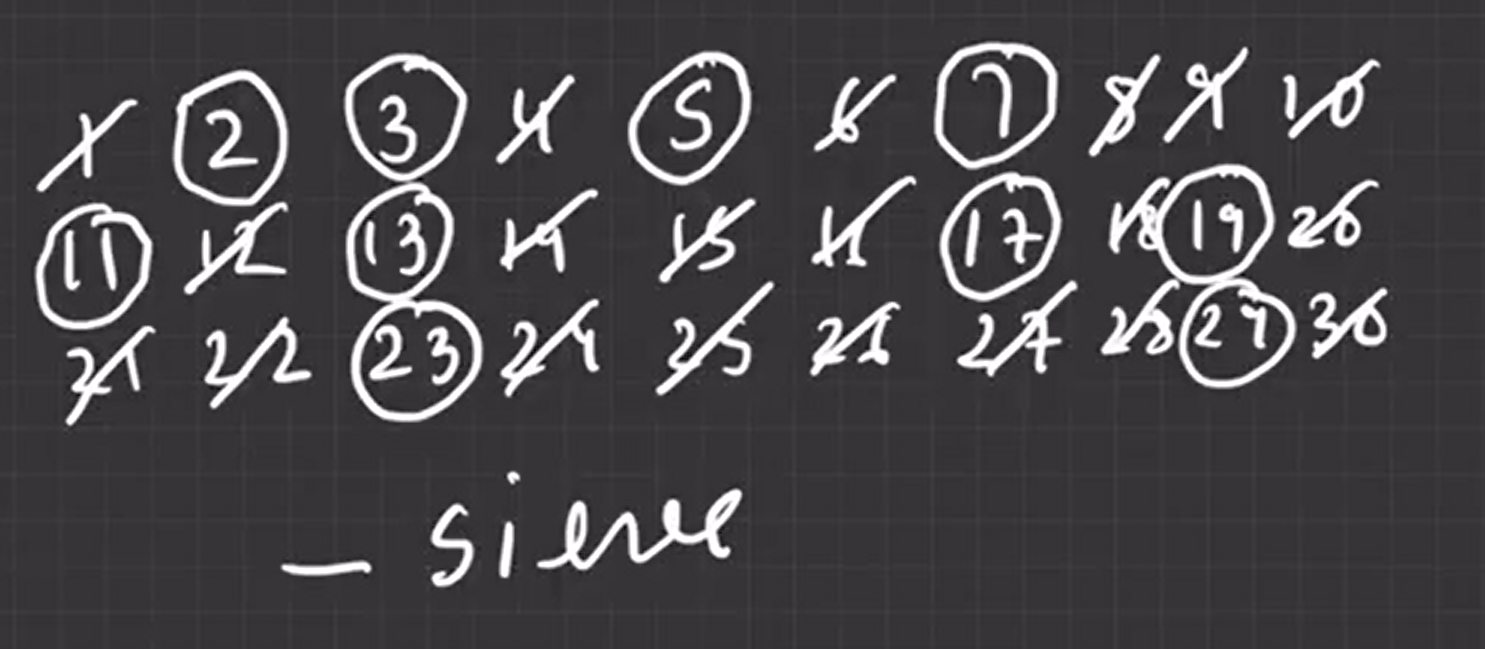 1 2 3 4 5 6 7 8 9 10
11 12 13 14 15 16 17 18 19 20
21 22 23 24 25 26 27 28 29 30
- sieve